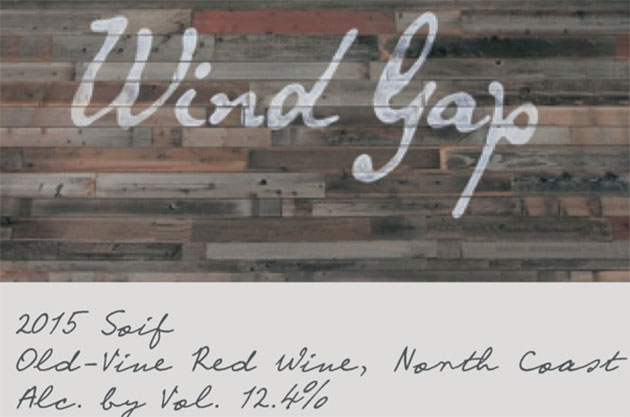 Wind Gap
2015 Soif
Old-Vine Red Wine, North Coast
Alc. by Vol. 12.4%